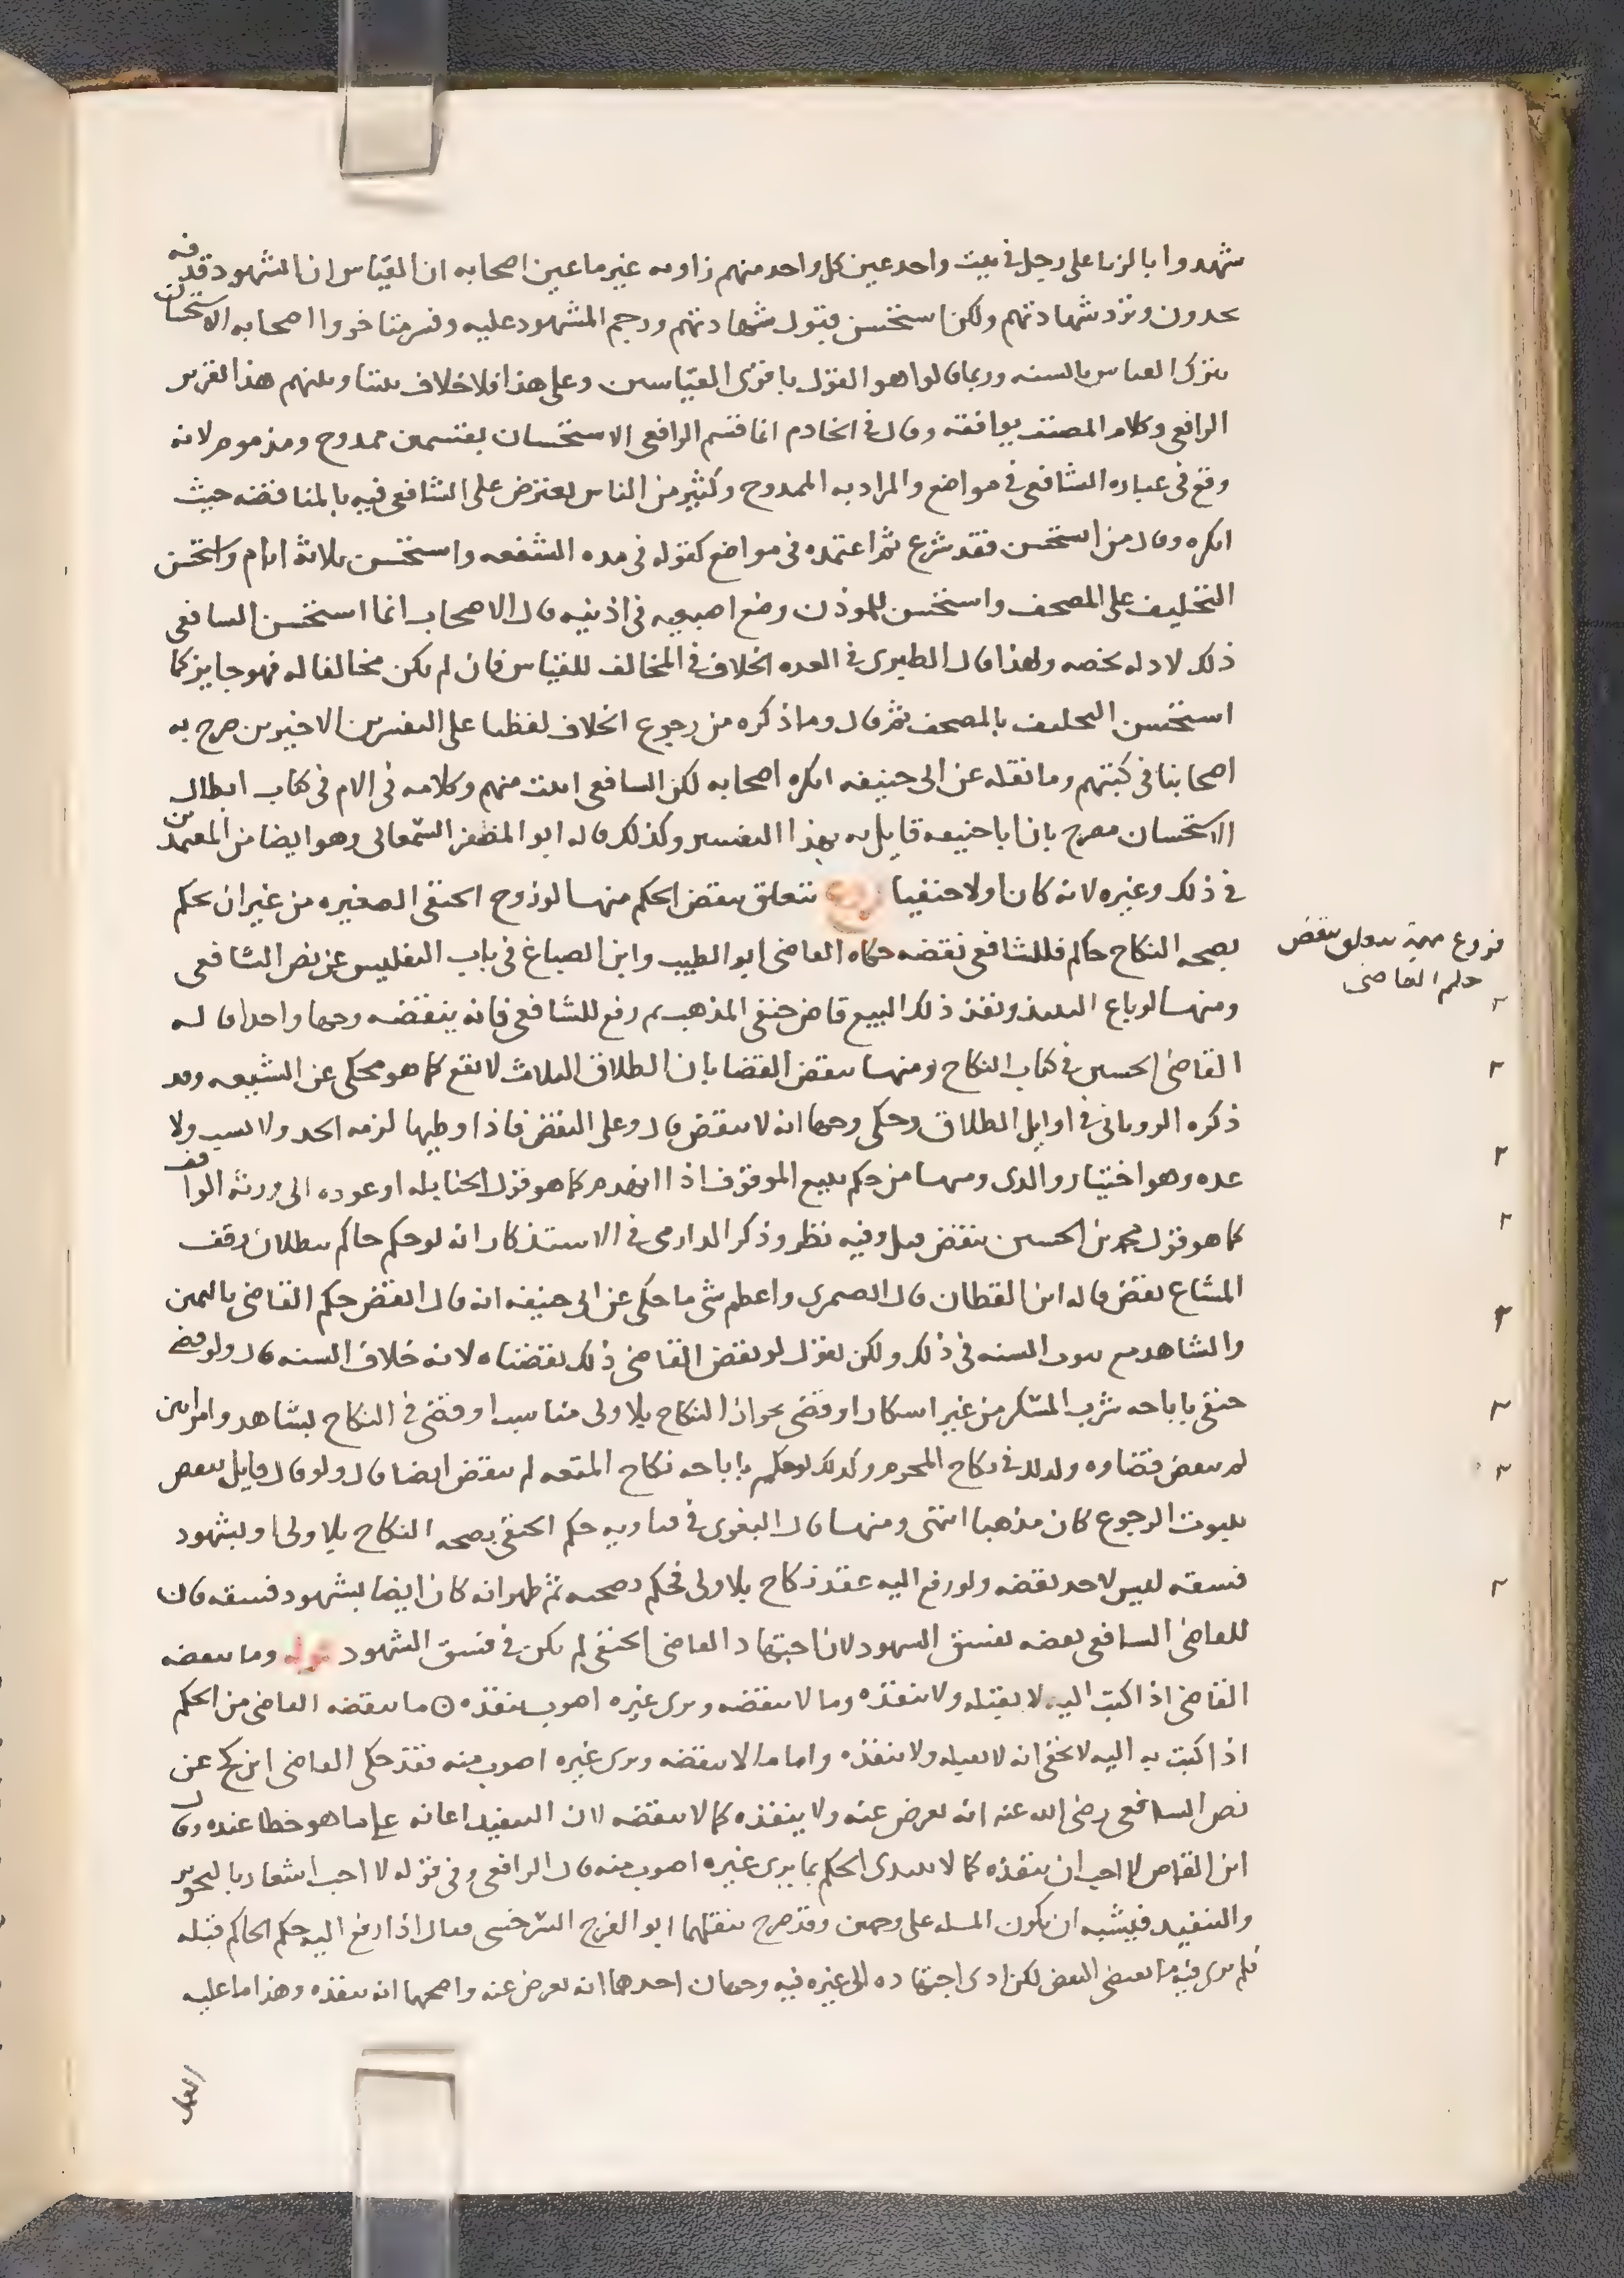 شهدوا بالزنا على رجل في بيت واحد عين كل واحد منهم زاويه غير ما عين اصحابه ان القياس ان الشهود قذفه
يحدون وترد شهادتهم ولكن استحسن قبول شهادتهم ورجم المشهود عليه وفسر متاخروا اصحابه الاستحسان
بترك القياس بالسنه وربما قالوا هو القول باقوى القياسين وعلى هذا فلا خلاف بيننا وبينهم هذا تقرير
الرافعي وكلام المصنف يوافقه وقال في الخادم انما قسم الرافعي الاستحسان بقسمين ممدوح ومذموم لانه
وقع في عباره الشافعي في مواضع والمراد به الممدوح وكثير من الناس يعترض على الشافعي فيه بالمناقضه حيث
انكره وقال من استحسن فقد شرع ثم اعتمده في مواضع كقوله في مده الشفعه واستحسن ثلاثة ايام واستحسن
التحليف على المصحف واستحسن للموذن وضع اصبعيه في اذنيه قال الاصحاب انما استحسن الشافعي
ذلك لادله تخصه ولهذا قال الطبري في العده الخلاف في المخالف للقياس فان لم يكن مخالفا له فهو جايز كما
استحسن التحليف بالمصحف ثم قال وما ذكره من رجوع الخلاف لفظيا على التفسيرين الاخيرين صرح به
اصحابنا في كتبهم وما نقله عن ابي حنيفه انكره اصحابه لكن الشافعي اثبت منهم وكلامه في الام في كتاب ابطال
الاستحسان مصرح بان ابا حنيفه قايل به بهذا التفسير وكذلك قاله ابو المظفر السمعاني وهو ايضا من المعتمدين
في ذلك وغيره لانه كان اولا حنفيا فروع تتعلق بنقض الحكم منها لو زوج الحنفي الصغيره من غير ان يحكم
بصحه النكاح حاكم فللشافعي نقضه حكاه القاضي ابو الطيب وابن الصباغ في باب التفليس عن نص الشافعي
فروع مهمة تتعلق بنقض
حكم القاضي
ومنها لو باع النبيذ ونفذ ذلك البيع قاض حنفي المذهب ثم رفع للشافعي فانه ينقضه وجها واحدا قاله
القاضي الحسين في كتاب النكاح ومنها ينقض القضا بان الطلاق الثلاث لا يقع كما هو محكي عن الشيعه وقد
ذكره الروياني في اوايل الطلاق وحكى وجها انه لا ينقض قال وعلى النقض فاذا وطيها لزمه الحد ولا نسب ولا
عده وهو اختيار والدي ومنها من حكم ببيع الموقوف اذا انهدم كما هو قول الحنابله او عوده الى ورثة الواقف
كما هو قول محمد بن الحسين ينقض قيل وفيه نظر وذكر الدارمي في الاستذكار انه لو حكم حاكم ببطلان وقف
المشاع نقض قاله ابن القطان قال الصيمري واعظم شي ما حكي عن ابي حنيفه انه قال انقض حكم القاضي باليمين
والشاهد مع ثبوت السنه في ذلك ولكن نقول لو نقض القاضي ذلك نقضناه لانه خلاف السنه قال ولو قضى
حنفي باباحه شرب المسكر من غير اسكار او قضى بجواز النكاح بلا ولي مناسب او قضى في النكاح بشاهد وامراتين
لم ينقض قضاوه وكذلك في نكاح المحرم وكذلك لو حكم باباحه نكاح المتعه لم ينقض ايضا قال ولو قال قايل ينقض
بثبوت الرجوع كان مذهبا انتهى ومنها قال البغوي في فتاويه حكم الحنفي بصحه النكاح بلا ولي او بشهود
فسقه ليس لاحد نقضه ولو رفع اليه عقد نكاح بلا ولي فحكم بصحته ثم ظهر انه كان ايضا بشهود فسقه فان
للقاضي الشافعي نقضه بفسق الشهود لان اجتهاد القاضي الحنفي لم يكن في فسق الشهود قوله وما ينقضه
القاضي اذا كتب اليه لا يقبله ولا ينفذه وما لا ينقضه ويرى غيره اصوب ينفذه ما ينقضه القاضي من الحكم
اذا كتب به اليه لا يخفى انه لا يقبله ولا ينفذه واما ما لا ينقضه ويرى غيره اصوب منه فقد حكى القاضي ابن كج عن
نص الشافعي رضي الله عنه انه يعرض عنه ولا ينفذه كما لا ينقضه لان التنفيذ اعانه على ما هو خطا عنده وقال
ابن القاص لا احب ان ينفذه كما لا يبتدى الحكم بما يرى غيره اصوب منه قال الرافعي وفي قوله لا احب اشعار بالتجويز
والتنفيذ فيشبه ان يكون المسله على وجهين وقد صرح بنقلهما ابو الفرج السرخسي فقال اذا رفع اليه حكم الحاكم قبله
فلم يرى فيه ما يقتضي النقض لكن ادى اجتهاده الى غيره فيه وجهان احدهما انه يعرض عنه واصحهما انه ينفذه وهذا ما عليه
العمل